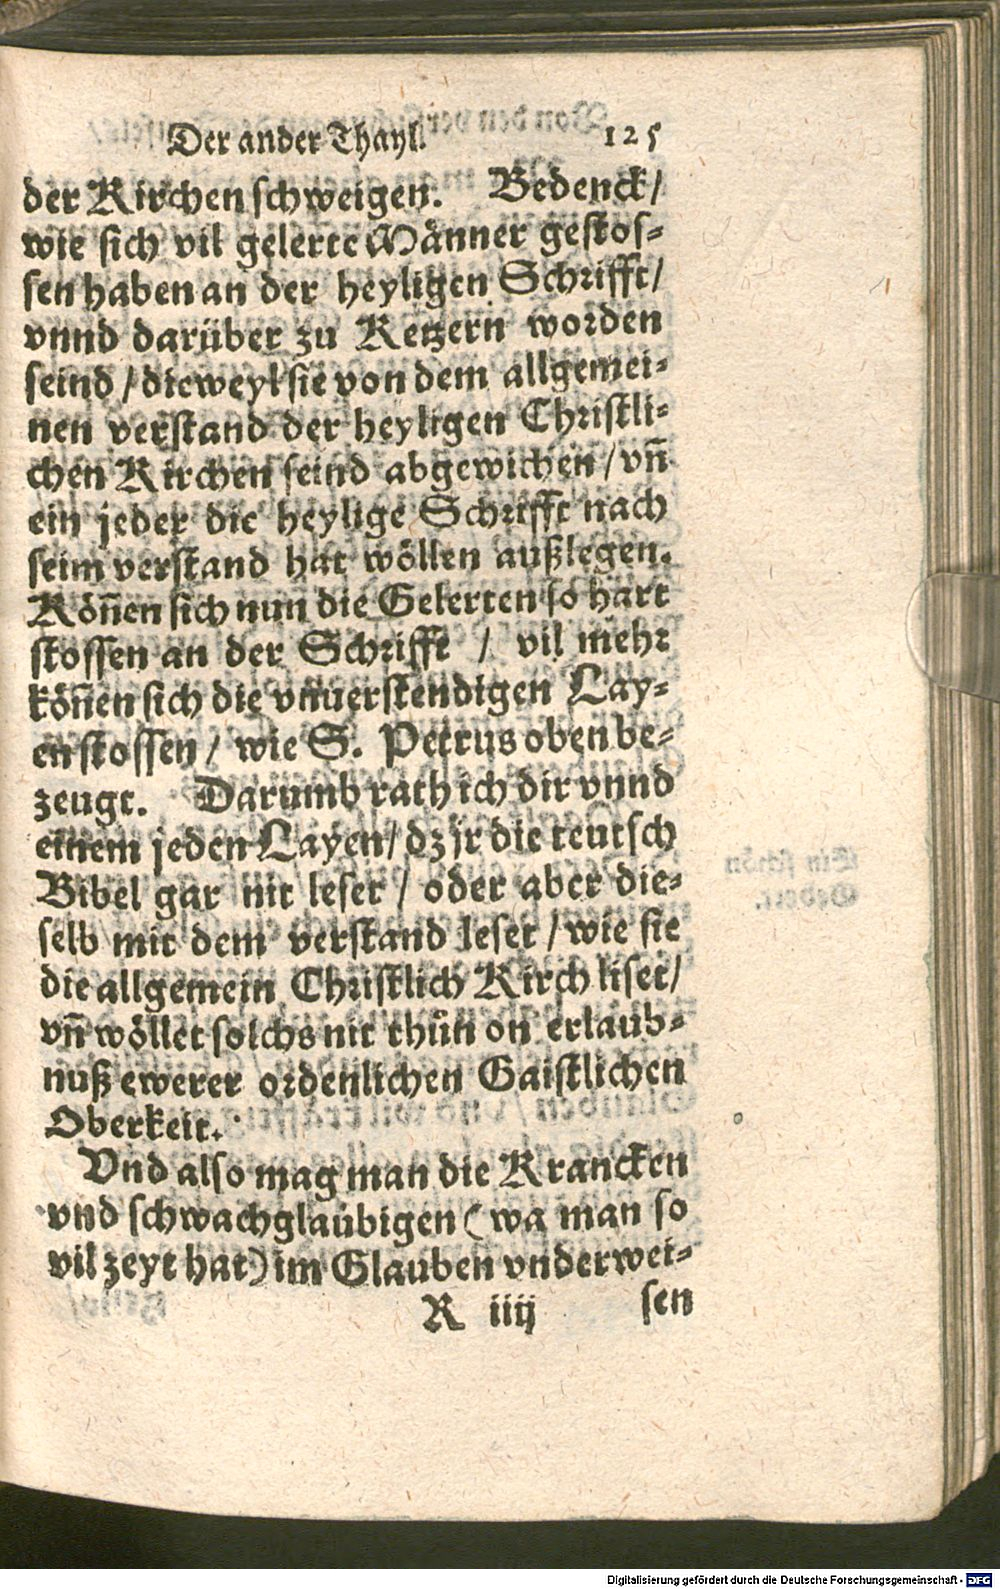 Der ander Thayl. 125
der Kirchen ſchweigen. Bedenck/
wie ſich vil gelerte Männer geſtoſ⸗
ſen haben an der heyligen Schrifft/
vnnd darüber zu Ketzern worden
ſeind / dieweyl ſie von dem allgemei⸗
nen verſtand der heyligen Chriſtli⸗
chen Kirchen ſeind abgewichen / vn̄
ein jeder die heylige Schrifft nach
ſeim verſtand hat wöllen außlegen.
Kön̄en ſich nun die Gelerten ſo hart
ſtoſſen an der Schrifft / vil mehr
kön̄en ſich die vnuerſtendigen Lay⸗
en ſtoſſen / wie S. Petrus oben be⸗
zeugt. Darumb rath ich dir vnnd
einem jeden Layen/ dz jr die teutſch
Bibel gar nit leſet / oder aber die⸗
ſelb mit dem verſtand leſet / wie ſie
die allgemein Chriſtlich Kirch liſet/
vn̄ wöllet ſolchs nit thůn on erlaub⸗
nuß ewerer ordenlichen Gaiſtlichen
Oberkeit.
Vnd alſo mag man die Krancken
vnd ſchwachglaubigen (wa man ſo
vil zeyt hat) im Glauben vnderwei⸗
R iiij ſen
Digitalisierung gefördert durch die Deutsche Forschungsgemeinschaft - DFG